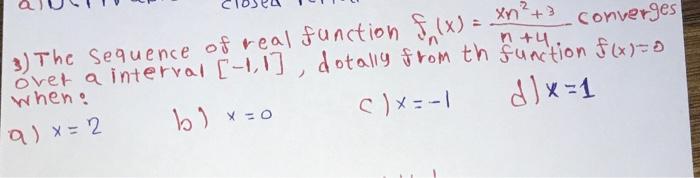 closed
3) The sequence of real function fn(x) = xn²+3 / n+4 converges
over a interval [-1,1], dotally from th function f(x)=0
when:
a) x = 2 b) x = 0 c) x = -1 d) x = 1